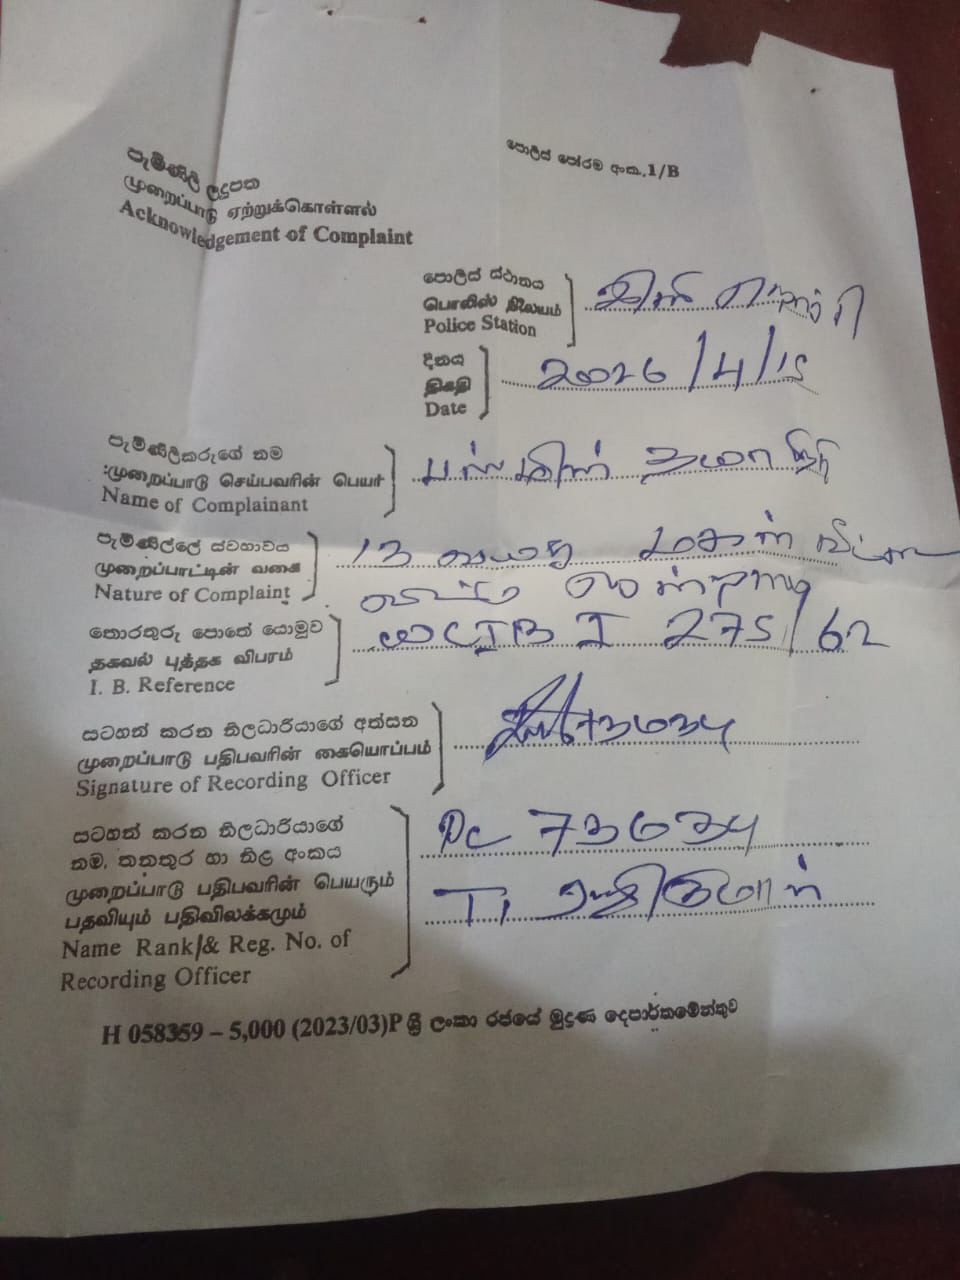 පොලිස් පෝරම අංක.1/B
පැමිණිලි ලදුපත
முறைப்பாடு ஏற்றுக்கொள்ளல்
Acknowledgement of Complaint
පොලිස් ස්ථානය
பொலிஸ் நிலையம்
Police Station
දිනය
திகதி
Date
2026/4/15
පැමිණිලිකරුගේ නම
முறைப்பாடு செய்பவரின் பெயர்
Name of Complainant
පැමිණිල්ලේ ස්වභාවය
முறைப்பாட்டின் வகை
Nature of Complaint
13 வயது மகள்
තොරතුරු පොතේ යොමුව
தகவல் புத்தக விபரம்
I. B. Reference
WCIB I 275/62
සටහන් කරන නිලධාරියාගේ අත්සන
முறைப்பாடு பதிபவரின் கையொப்பம்
Signature of Recording Officer
සටහන් කරන නිලධාරියාගේ
නම, තනතුර හා නිළ අංකය
முறைப்பாடு பதிபவரின் பெயரும்
பதவியும் பதிவிலக்கமும்
Name Rank & Reg. No. of
Recording Officer
PC 73034
H 058359 – 5,000 (2023/03)P ශ්‍රී ලංකා රජයේ මුද්‍රණ දෙපාර්තමේන්තුව